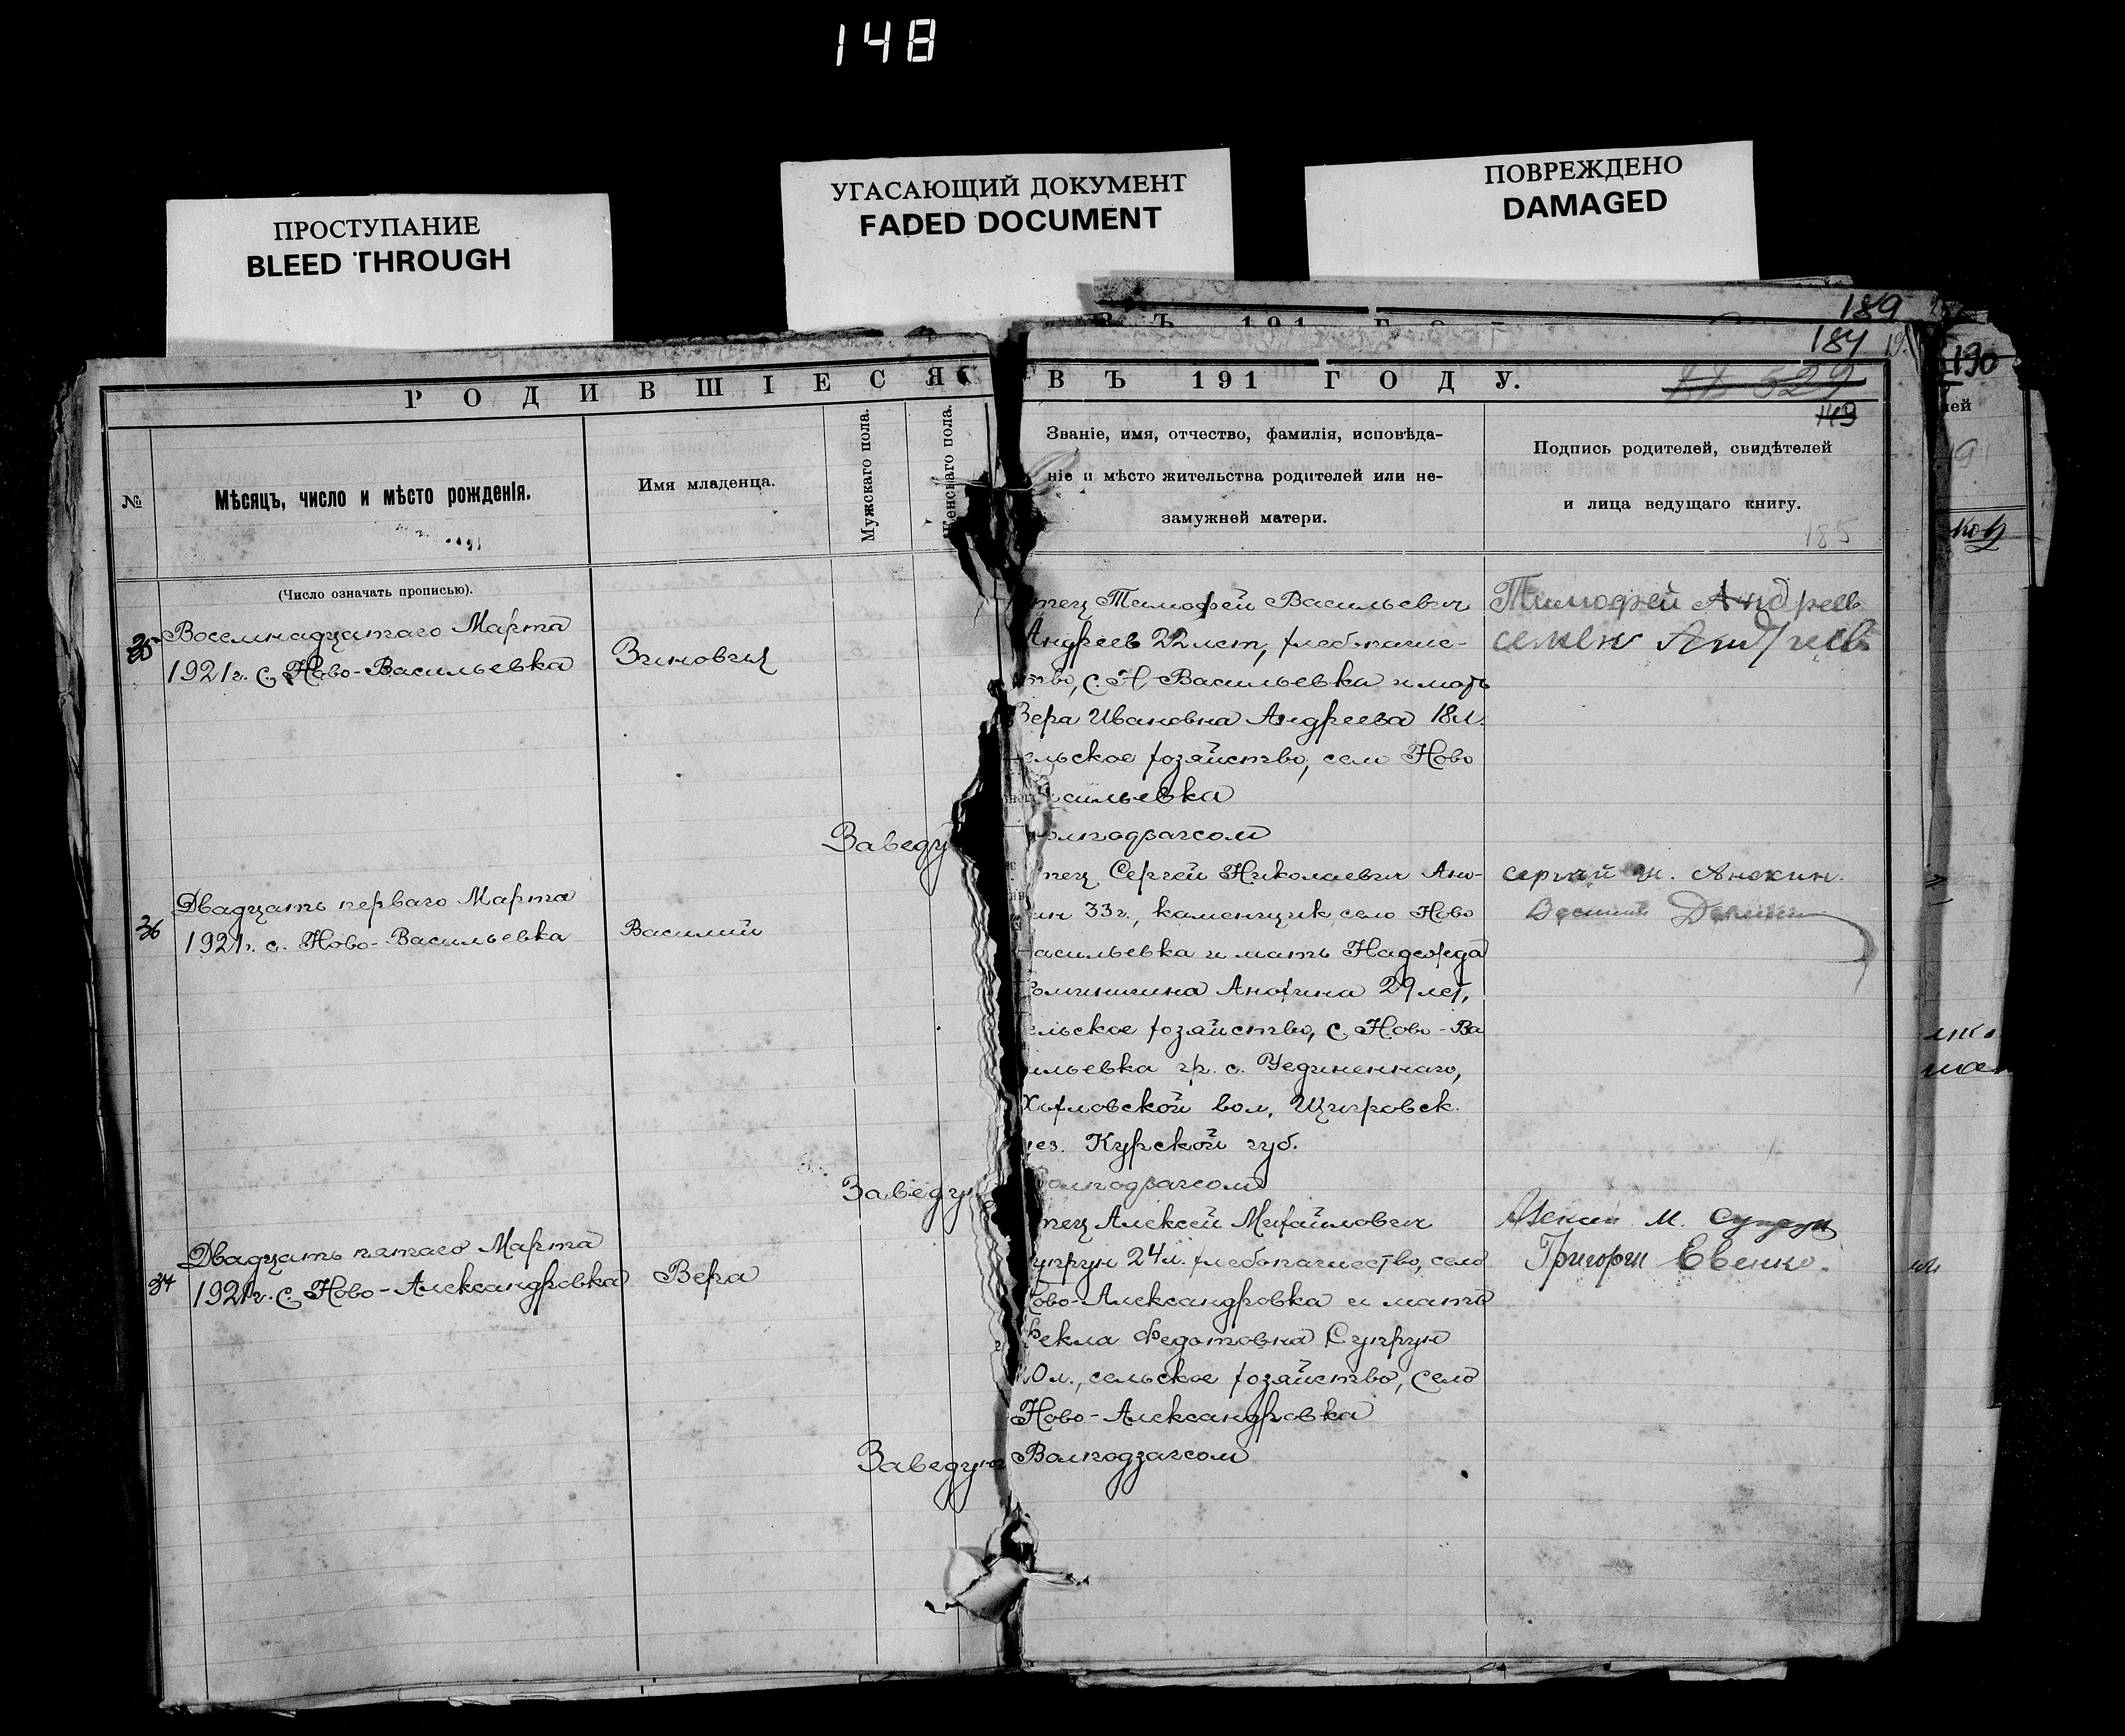 148
ПРОСТУПАНИЕ
BLEED THROUGH
УГАСАЮЩИЙ ДОКУМЕНТ
FADED DOCUMENT
ПОВРЕЖДЕНО
DAMAGED
189
184
190
РОДИВШІЕСЯ
ВЪ 191 ГОДУ.
529
149
№
Мѣсяцъ, число и мѣсто рожденія.
Имя младенца.
Мужскаго пола.
Женскаго пола.
Званіе, имя, отчество, фамилія, исповѣда-
ніе и мѣсто жительства родителей или не-
замужней матери.
Подпись родителей, свидѣтелей
и лица ведущаго книгу.
185
(Число означать прописью).
35
Восемнадцатаго Марта
1921г. с. Ново-Васильевка
Зиновий
тец Тимофей Васильевич
Андреев 22 лет, хлебопаше-
тво, с. Н Васильевка и мать
Вера Ивановна Андреева 18л.
ельское хозяйство, село Ново
сильевка
Заведу
олподзагсом
Тимофей Андреев
семен Андреев
36
Двадцать перваго Марта
1921г. с. Ново-Васильевка
Василий
тец Сергей Николаевич Ано-
ин 33г., каменщик, село Ново
асильевка и мать Надежда
Анохина 29 лет,
ельское хозяйство, с. Ново-Ва
ильевка гр. с. Уединеннаго,
Хохловской вол, Щигровск.
уез. Курской губ.
Заведу
олподзагсом
сергей н. Анохин.
37
Двадцать пятаго Марта
1921г. с. Ново-Александровка
Вера
тец Алексей Михайлович
упрун 24л. хлебопашество, село
ово-Александровка и мать
Фекла Федотовна Супрун
0л., сельское хозяйство, село
Ново-Александровка
Заведующ
Волподзагсом
М. Супрун
Григорий Евенко.